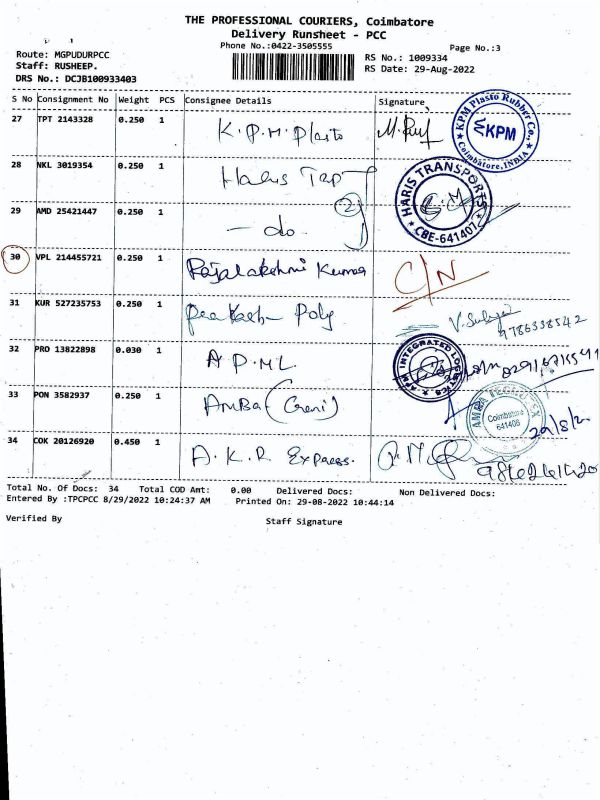 THE PROFESSIONAL COURIERS, Coimbatore
Delivery Runsheet - PCC
Phone No.:0422-3505555
Page No.:3
Route: MGPUDURPCC
Staff: RUSHEEP.
DRS No.: DCJB100933403
RS No.: 1009334
RS Date: 29-Aug-2022
S No Consignment No Weight PCS Consignee Details Signature
27 TPT 2143328 0.250 1 K.P.M. Plasto
KPM Plasto Rubber Co.,
KPM
Coimbatore, INDIA
28 NKL 3019354 0.250 1 Haris Tap
HARIS TRANSPORTS
CBE-641407
29 AMD 25421447 0.250 1 - do - 2
30 VPL 214455721 0.250 1 Rajalakshmi Kumar C/N
31 KUR 527235753 0.250 1 Prakash Poly
9786338542
32 PRO 13822898 0.030 1 A P.ML
INTEGRATED LOGISTICS
33 PON 3582937 0.250 1 Amba (Creni)
Coimbatore
641406
29/8/2
34 COK 20126920 0.450 1 A.K.R Express.
Total No. Of Docs: 34 Total COD Amt: 0.00 Delivered Docs: Non Delivered Docs:
Entered By :TPCPCC 8/29/2022 10:24:37 AM Printed On: 29-08-2022 10:44:14
Verified By Staff Signature